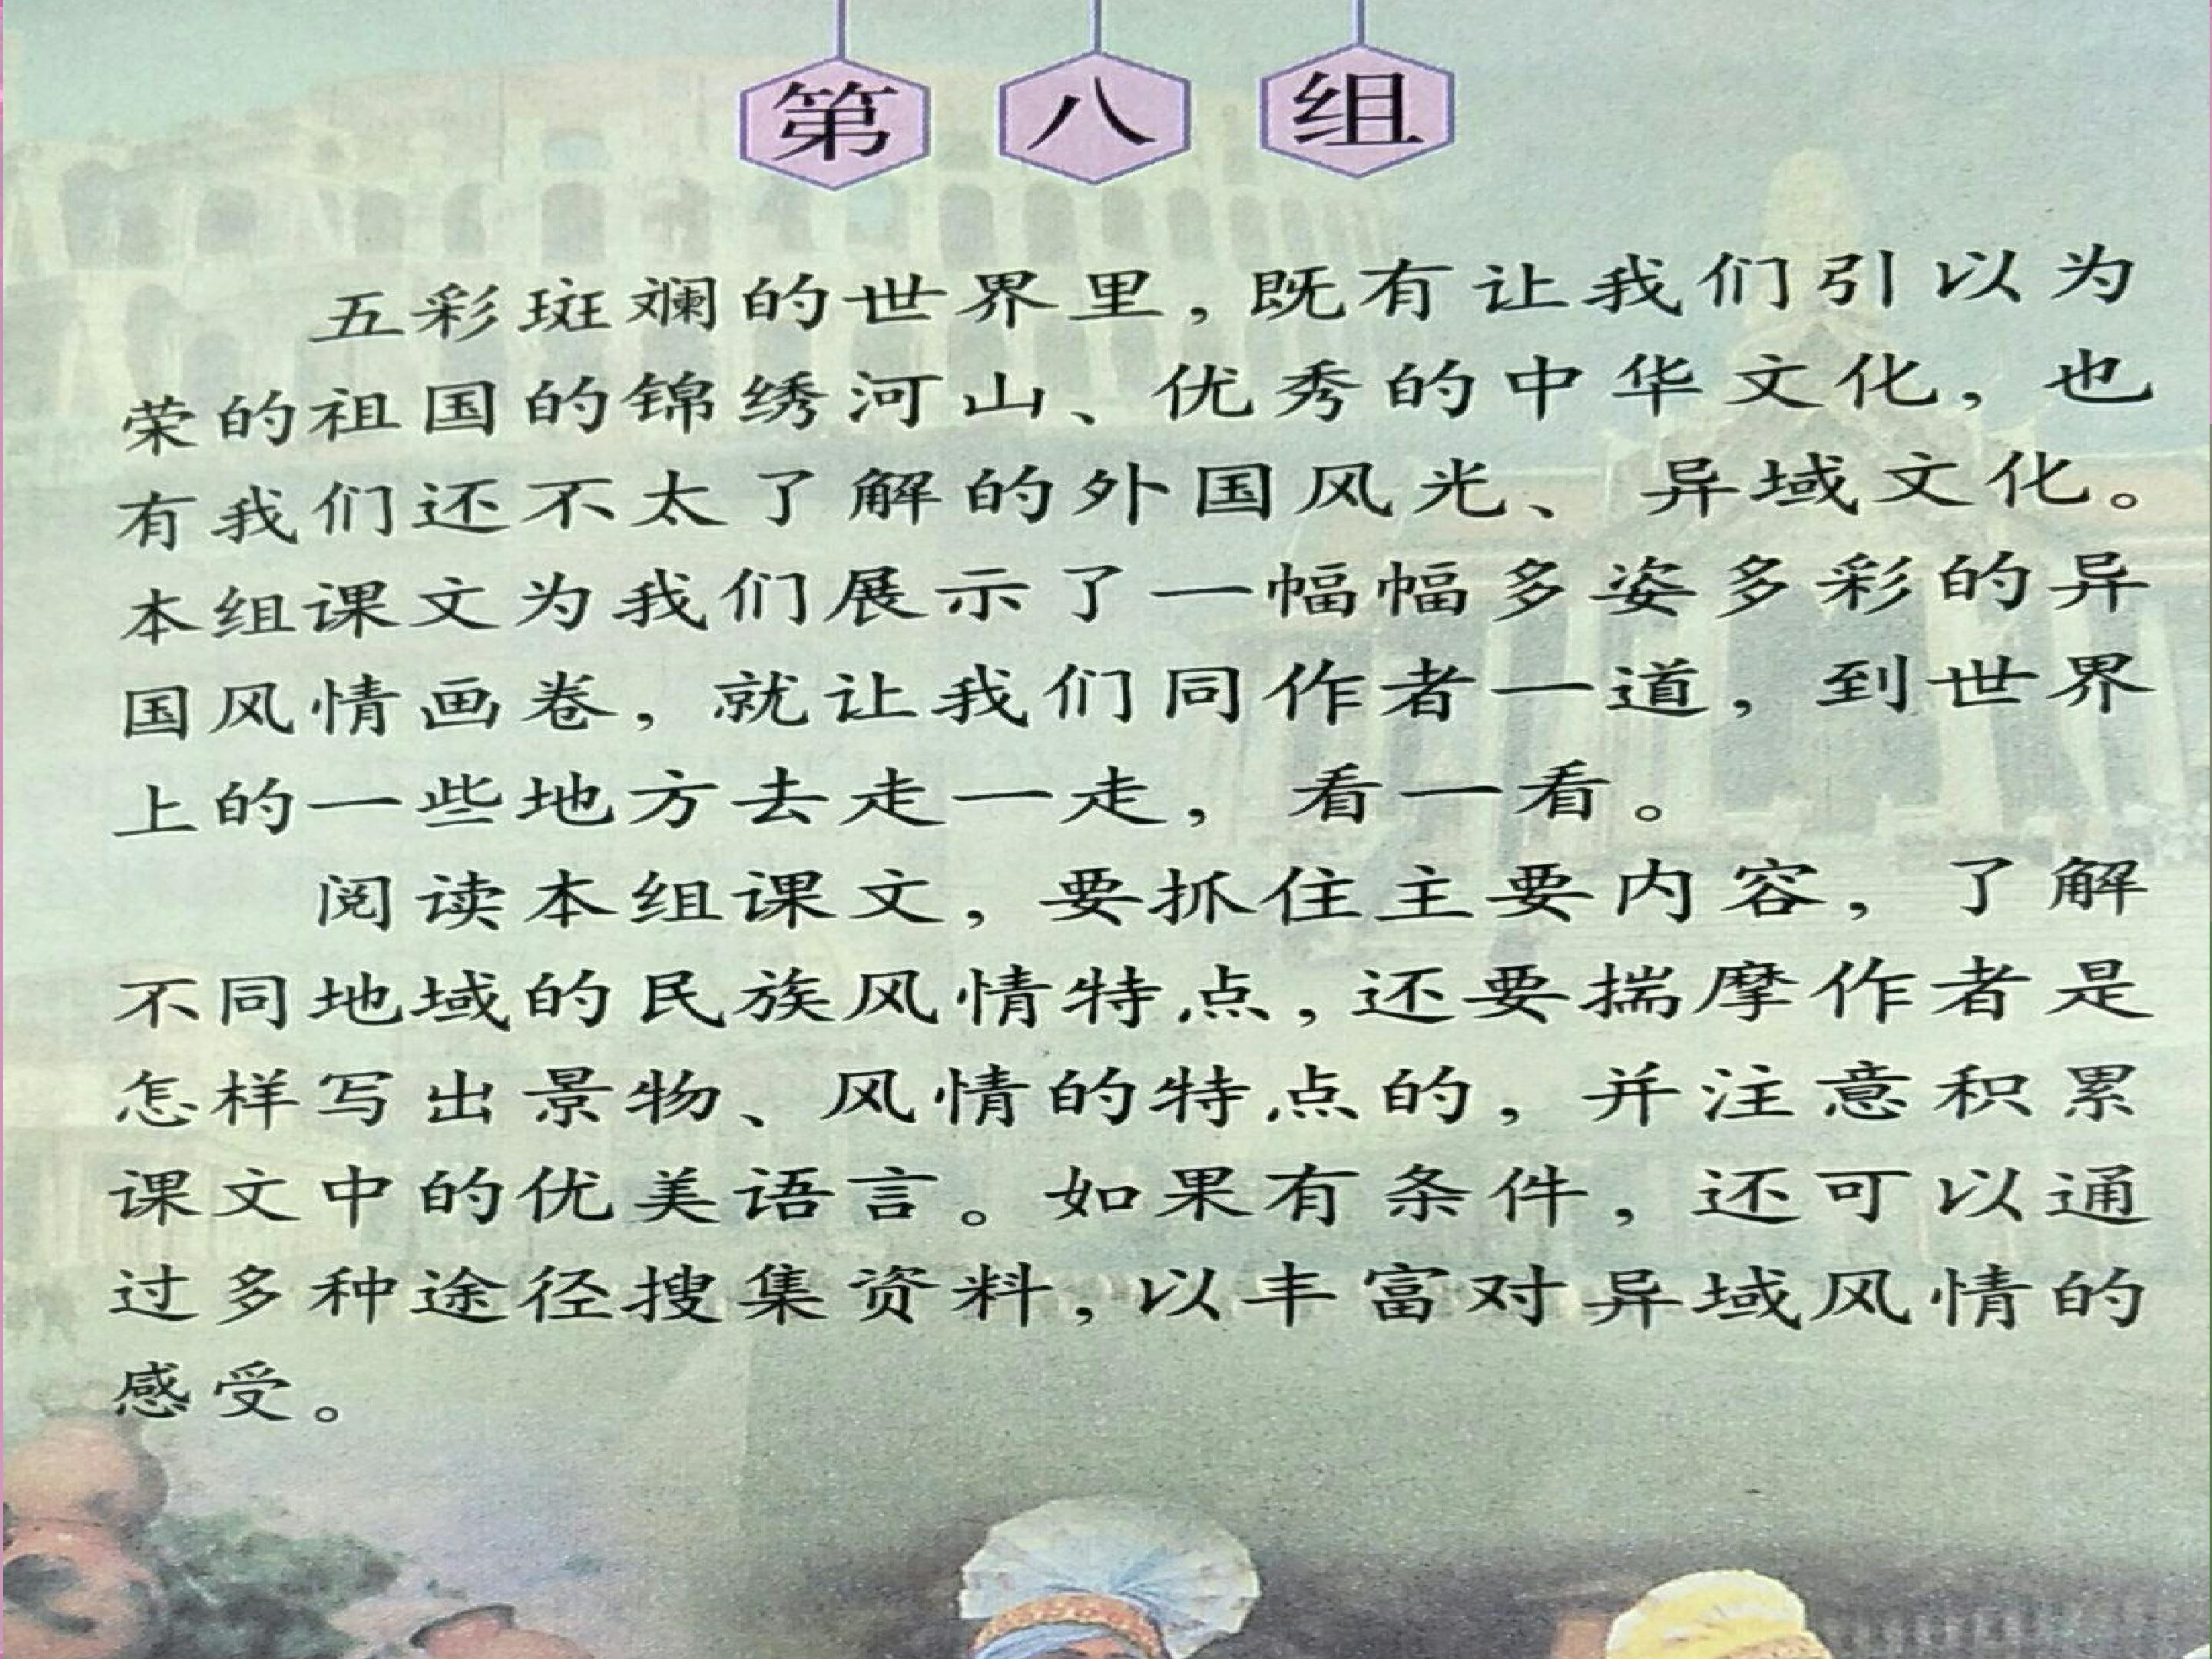 第八组
五彩斑斓的世界里，既有让我们引以为
荣的祖国的锦绣河山、优秀的中华文化，也
有我们还不太了解的外国风光、异域文化。
本组课文为我们展示了一幅幅多姿多彩的异
国风情画卷，就让我们同作者一道，到世界
上的一些地方去走一走，看一看。
阅读本组课文，要抓住主要内容，了解
不同地域的民族风情特点，还要揣摩作者是
怎样写出景物、风情的特点的，并注意积累
课文中的优美语言。如果有条件，还可以通
过多种途径搜集资料，以丰富对异域风情的
感受。